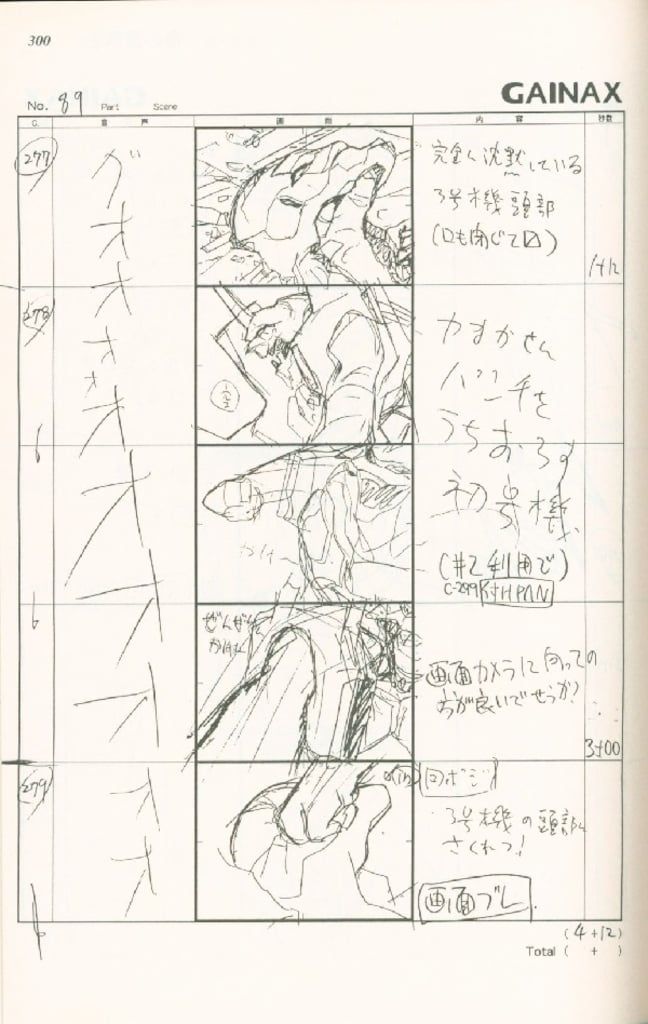 300
GAINAX
No. 89 Part Scene
C. 音声 画面 内容 秒数
277
ガ
オ
オ
オ
オ
オ
オ
オ
オ
オ
オ
完全に沈黙している
3号機頭部
(口も閉じて
1+12
278
空
初号機
(#2利用で)
C-299
PAN
画面カメラに向っての
方が良いでせうか?
3+00
279
同ポジ
3号機の頭部に
さくれつ!
画面ブレ
(4+12)
Total ( + )